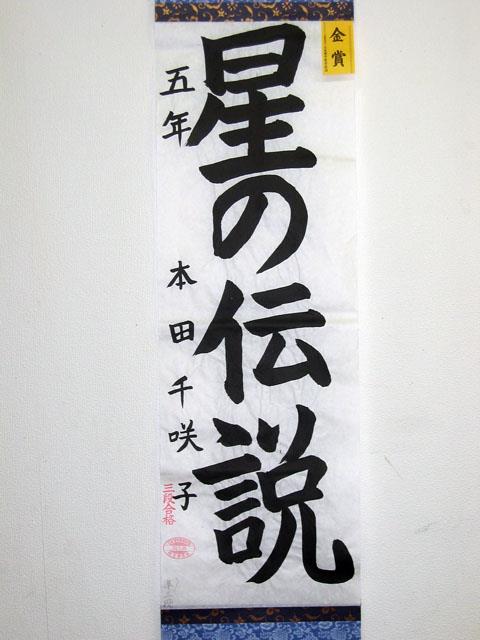 金賞
星の伝説
五年 本田千咲子
三段合格